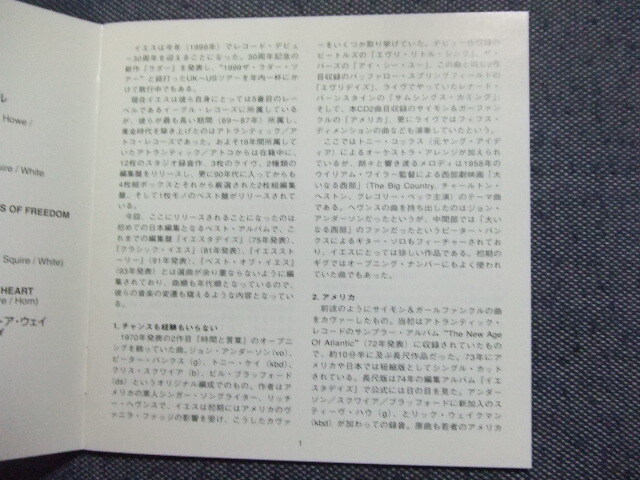 ル
Howe /
uire / White
S OF FREEDOM
Squire / White)
HEART
re / Horn)
ト・ア・ウェイ
イエスは今年(1999年)でレコード・デビュ
ー30周年を迎えることになった。30周年記念の
新作『ラダー』を発表し、"1999ザ・ラダー・ツ
アー"と銘打ったUK〜USツアーを年内一杯にか
けて敢行中でもある。
現在イエスは彼ら自身にとっては5番目のレー
ベルであるイーグル・レコーズに所属している
が、彼らが最も長い期間(69〜87年)所属し、
黄金時代を築き上げたのはアトランティック/ア
トコ・レコーズであった。およそ18年間所属し
ていたアトランティック/アトコからは在籍中に、
12枚のスタジオ録音作、3枚のライヴ、2種類の
編集盤をリリースし、更に90年代に入ってからも
4枚組ボックスとそれから厳選された2枚組編集
盤、そして1枚モノのベスト盤がリリースされて
いる。
今回、ここにリリースされることになったのは
初めての日本編集となるベスト・アルバムで、こ
れまでの編集盤『イエスタデイズ』(75年発表)、
『クラシック・イエス』(81年発表)、『イエススト
ーリー』(91年発表)、『ベスト・オブ・イエス』
(93年発表)とは選曲が余り重ならないように編
集されており、曲順も年代順となっているので、
彼らの音楽の変遷も窺えるような内容となってい
る。
1. チャンスも経験もいらない
1970年発表の2作目『時間と言葉』のオープニ
ングを飾っていた曲。ジョン・アンダーソン(vo)、
ピーター・バンクス(g)、トニー・ケイ(kbd)、
クリス・スクワイア(b)、ビル・ブラッフォード
(ds)というオリジナル編成でのもの。作者はア
メリカの黒人シンガー・ソングライター、リッチ
ー・ヘヴンスで、イエスは初期にはアメリカのヴ
ァニラ・ファッジの影響を受け、こうしたカヴァ
ーをいくつか取り挙げていた。デビュー作収録の
ビートルズの「エヴリ・リトル・シング」、ザ・
バーズの「アイ・シー・ユー」、この曲と同じ2作
目収録のバッファロー・スプリングフィールドの
「エヴリデイズ」、ライヴでやっていたレナード・
バーンスタインの「サムシングス・カミング」、
そして、本CD2曲目収録のサイモン&ガーファン
クルの「アメリカ」、更にライヴではフィフス・
ディメンションの曲なども演奏していたという。
ここではトニー・コックス(元ヤング・アイデ
ィア)によるオーケストラ・アレンジが加えられ
ているが、朗々と響き渡るメロディは1958年の
ウイリアム・ワイラー監督による西部劇映画「大
いなる西部」(The Big Country, チャールトン・
ヘストン、グレゴリー・ペック主演)のテーマ曲
である。ヘヴンスの曲を持ち出したのはジョン・
アンダーソンだったというが、中間部では「大い
なる西部」のファンだったというピーター・バン
クスによるギター・ソロもフィーチャーされてお
り、イエスにとっては珍しい作品である。初期の
ギグではオープニング・ナンバーにもよく使われ
ていた曲でもあった。
2. アメリカ
前述のようにサイモン&ガールファンクルの曲
をカヴァーしたもの。当初はアトランティック・
レコードのサンプラー・アルバム "The New Age
Of Atlantic"(72年発表)に収録されていたもの
で、約10分半に及ぶ長尺作品だった。73年にア
メリカや日本では短縮版としてシングル・カット
されている。長尺版は74年の編集アルバム『イエ
スタデイズ』で公式には日の目を見た。アンダー
ソン/スクワイア/ブラッフォードに新加入のス
ティーヴ・ハウ(g)、とリック・ウェイクマン
(kbd)が加わっての録音。原曲も若者のアメリカ
1